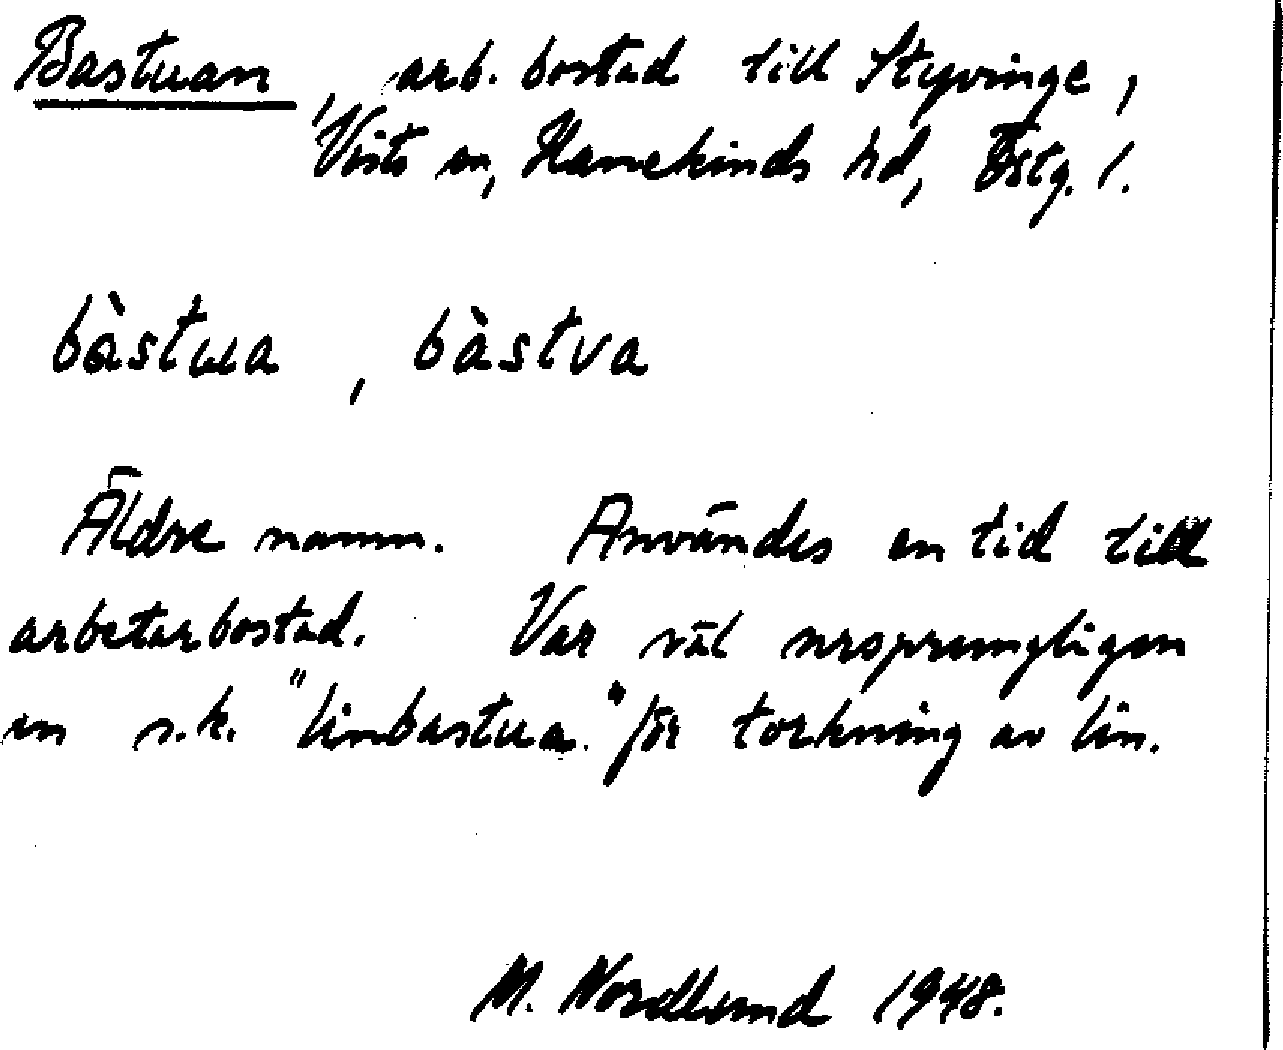 Bastuan, arb. bostad till Styvinge,
Vists sn, Hanekinds hd, Östg. l.
bàstua, bàstva
Äldre namn. Användes en tid till
arbetarbostad. Var väl ursprungligen
en s.k. "linbastua" för torkning av lin.
M. Nordlund 1948.